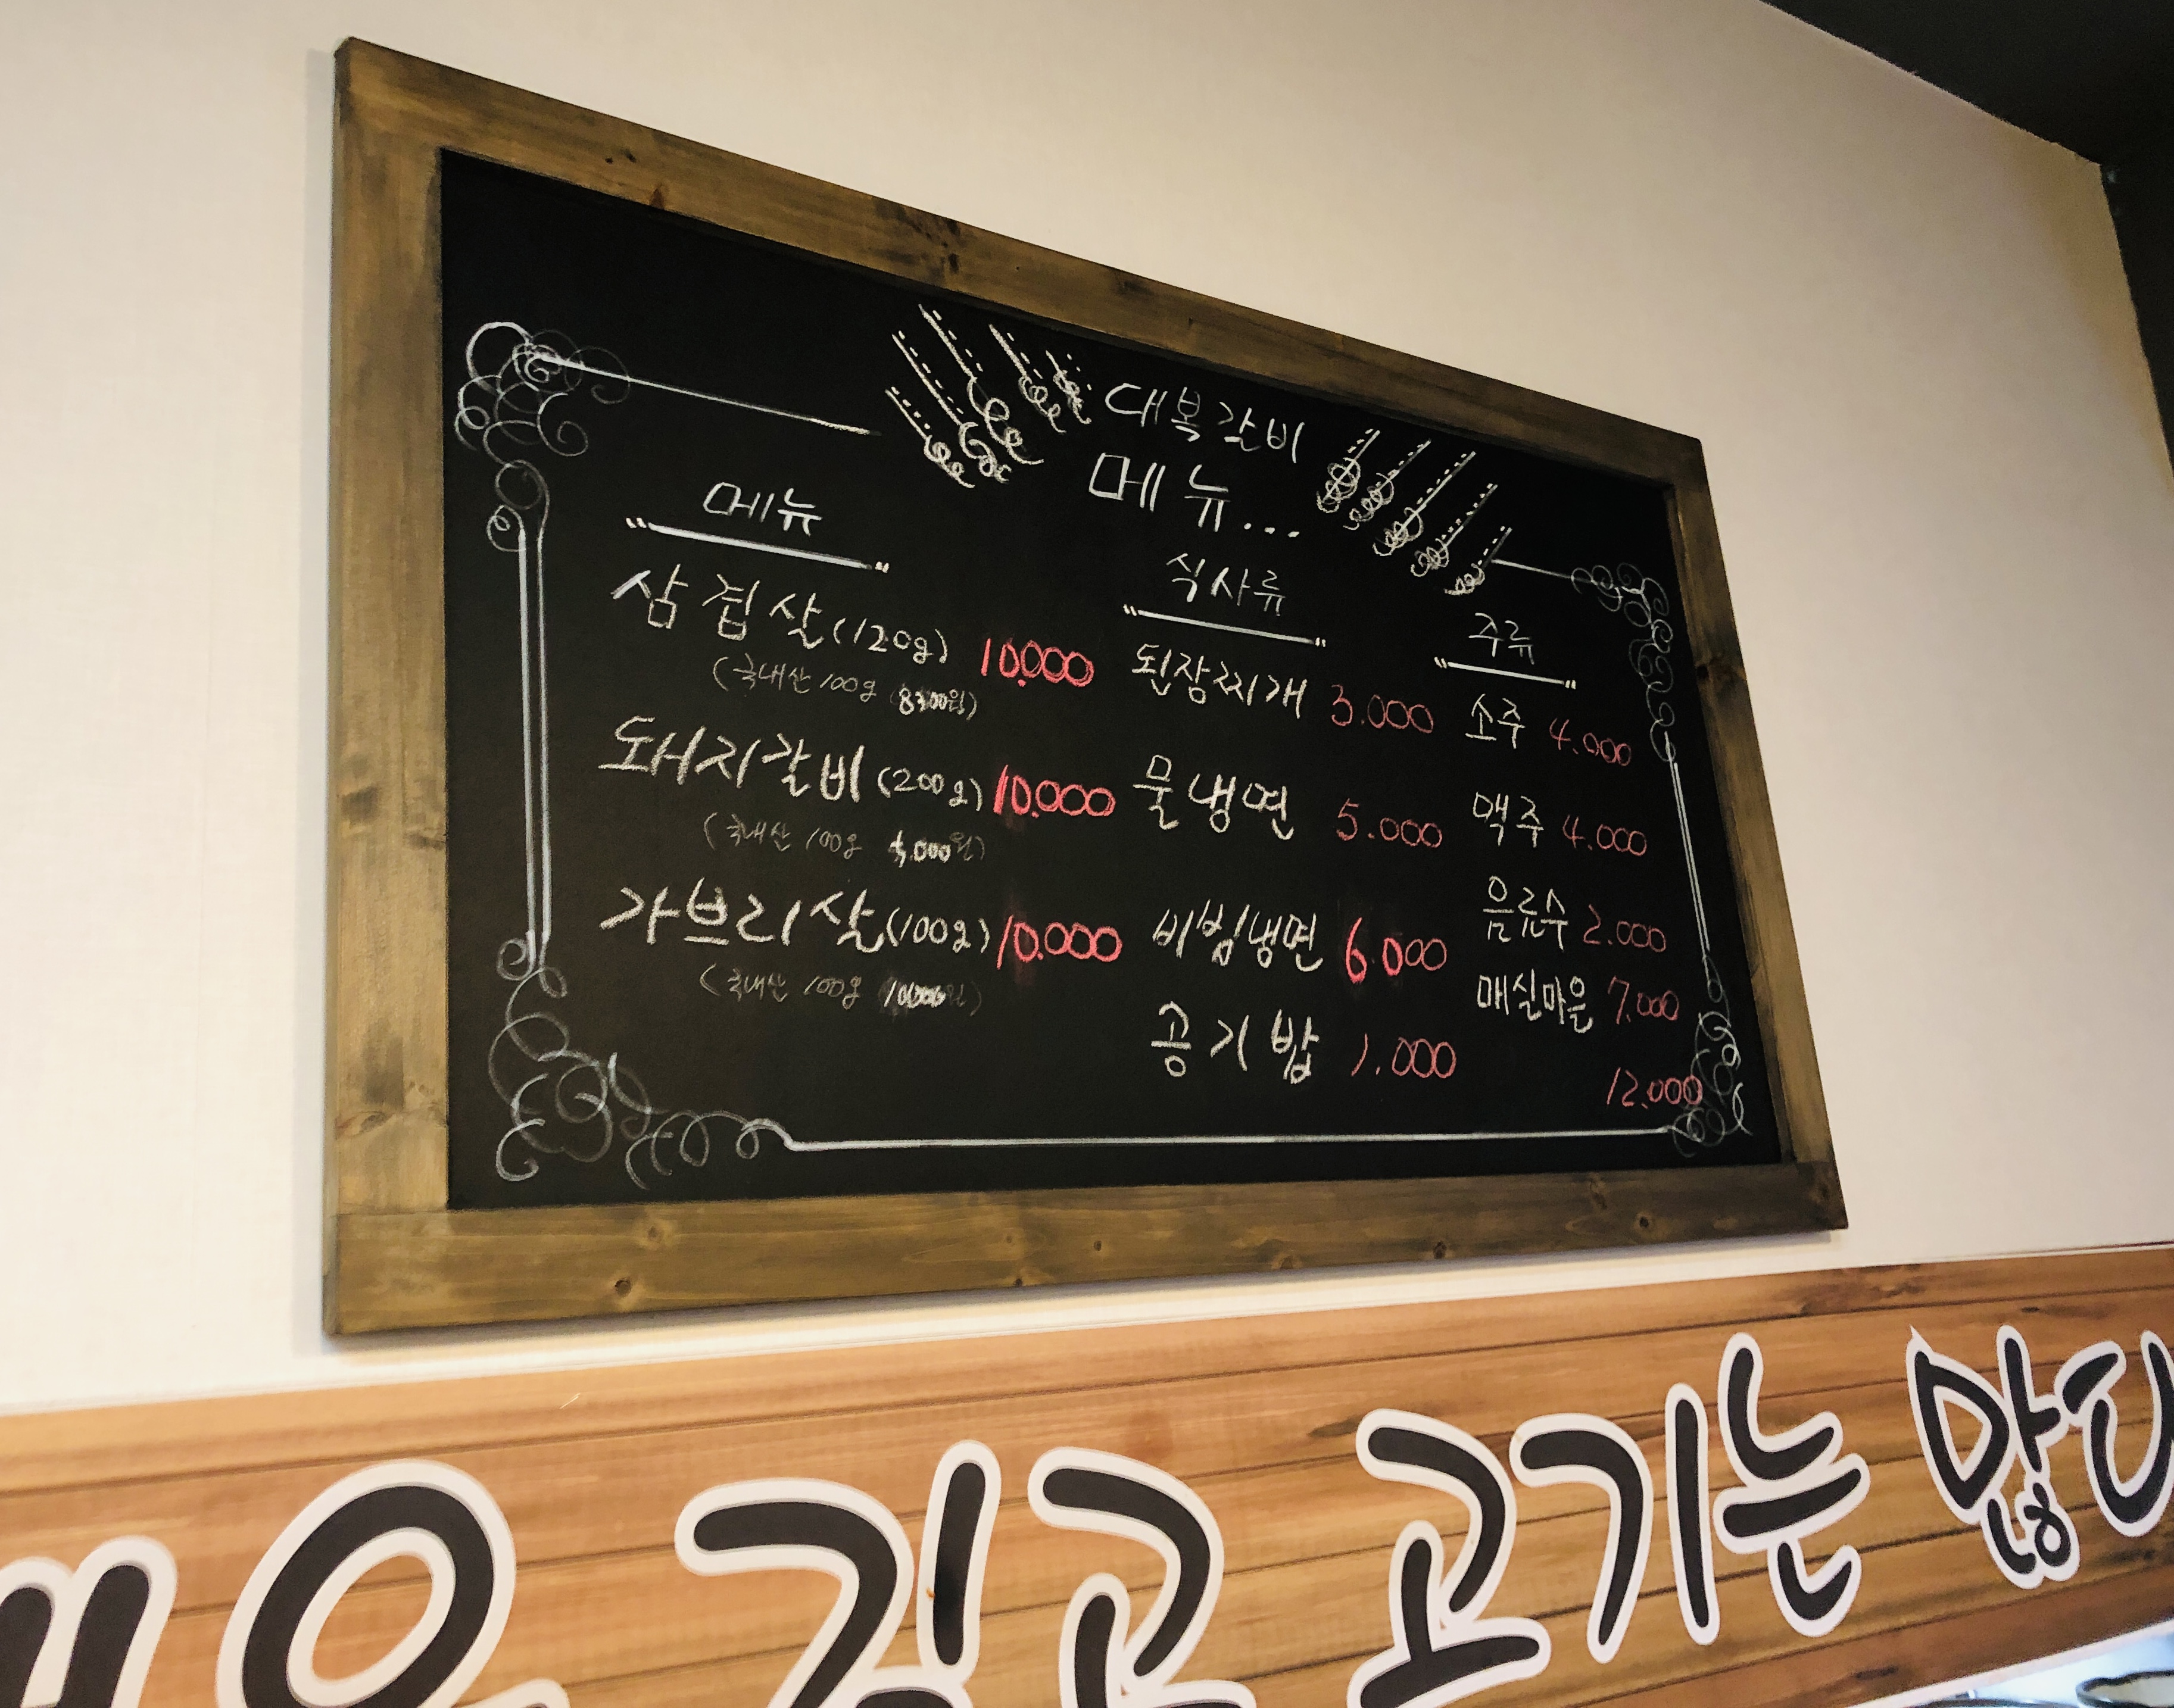 대복갈비
메뉴...
메뉴
삼겹살(120g) 10.000
(국내산 100g 8300원)
돼지갈비(200g) 10.000
(국내산 100g 5,000원)
가브리살(100g) 10.000
(국내산 100g 10000원)
식사류
된장찌개 3.000
물냉면 5.000
비빔냉면 6.000
공기밥 1.000
주류
소주 4.000
맥주 4.000
음료수 2.000
매실마을 7.000
12.000
고기는